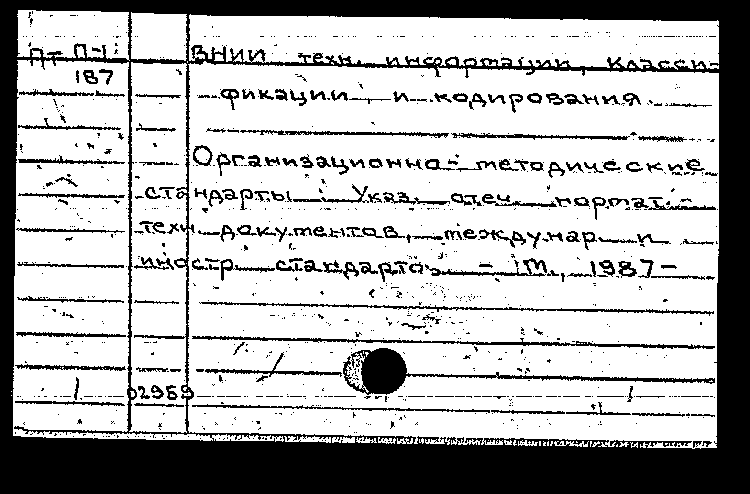 Пт П-1:
187
ВНИИ техн. информации, класси-
фикации и кодирования.
Организационно-методические
стандарты : Указ. отеч. нормат.-
техн. документов, междунар. и
иностр. стандартов. - М., 1987-
02959